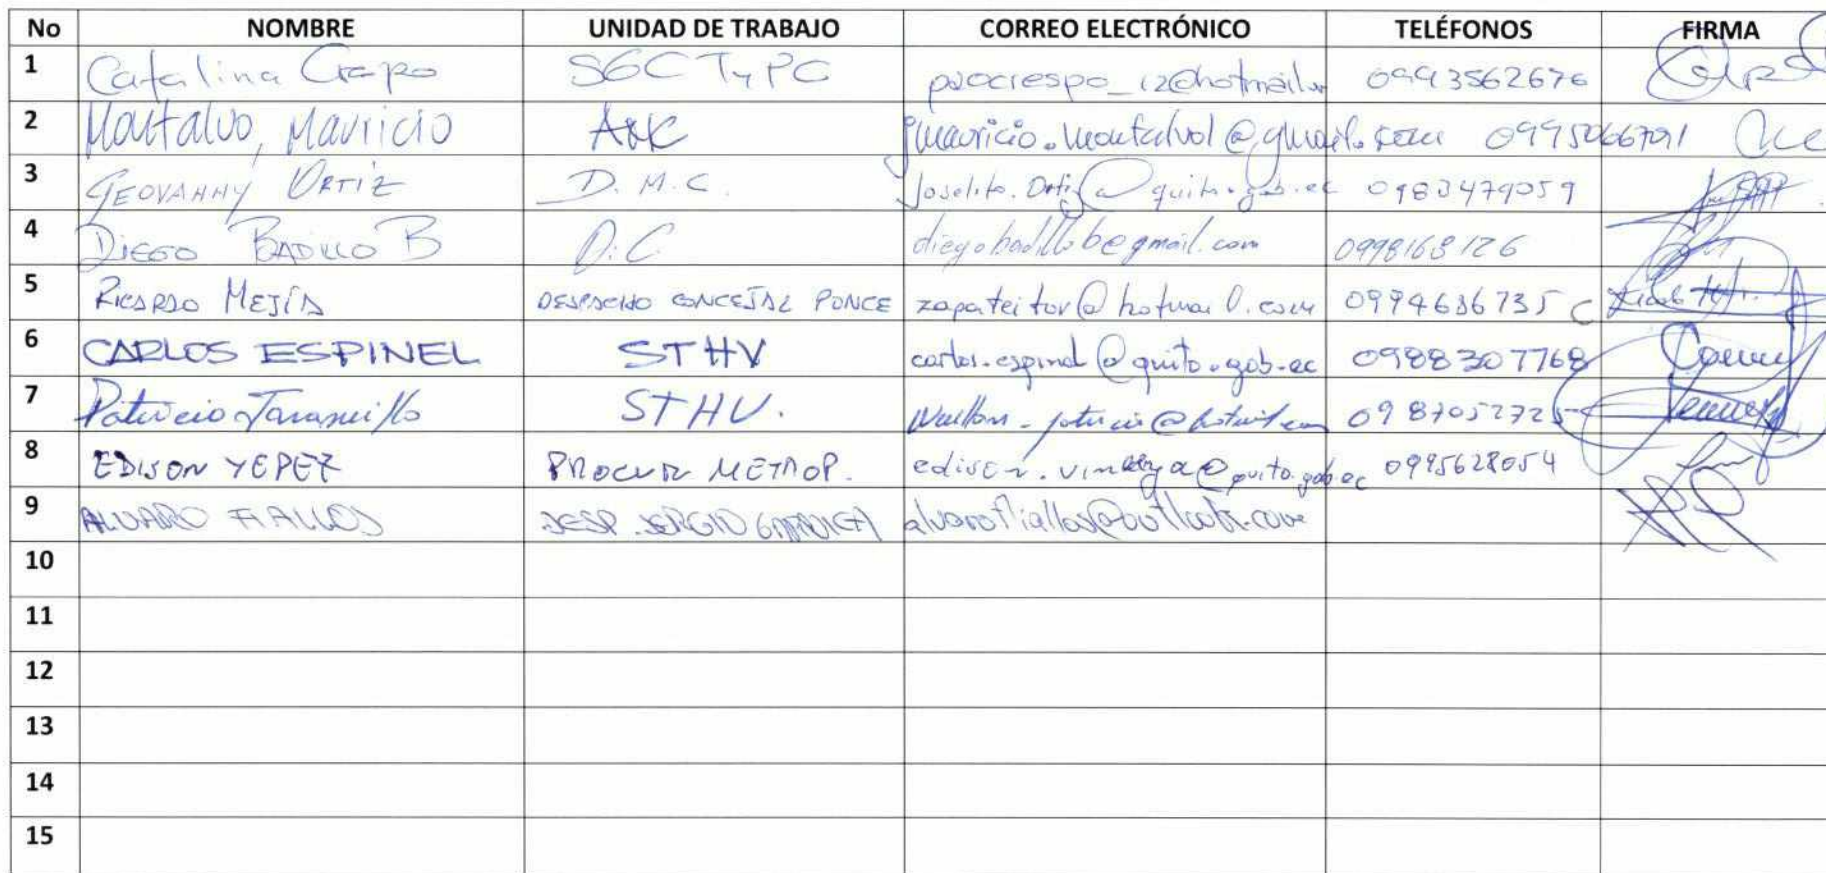 No NOMBRE UNIDAD DE TRABAJO CORREO ELECTRÓNICO TELÉFONOS FIRMA
1 Catalina Crespo SGCTyPC 0993562676
2 Montalvo, Mauricio jmauricio.montalvo1@gmail.com
3 GEOVANNY ORTIZ D.M.C. Joselito.Ortiz@quito.gob.ec 0983479059
4 DIEGO BADILLO B D.C. diegobadillob@gmail.com 0998168126
5 RICARDO MEJÍA DESPACHO CONCEJAL PONCE zapateitor@hotmail.com 0994636735
6 CARLOS ESPINEL STHV carlos.espinel@quito.gob.ec 0988307768
7 Patricio Jaramillo STHV. 0987052725
8 EDISON YEPEZ PROCUR METROP. 0995628054
9 ALVARO FIALLOS DESP. SERGIO GARNICA alvarofiallos@outlook.com
10
11
12
13
14
15